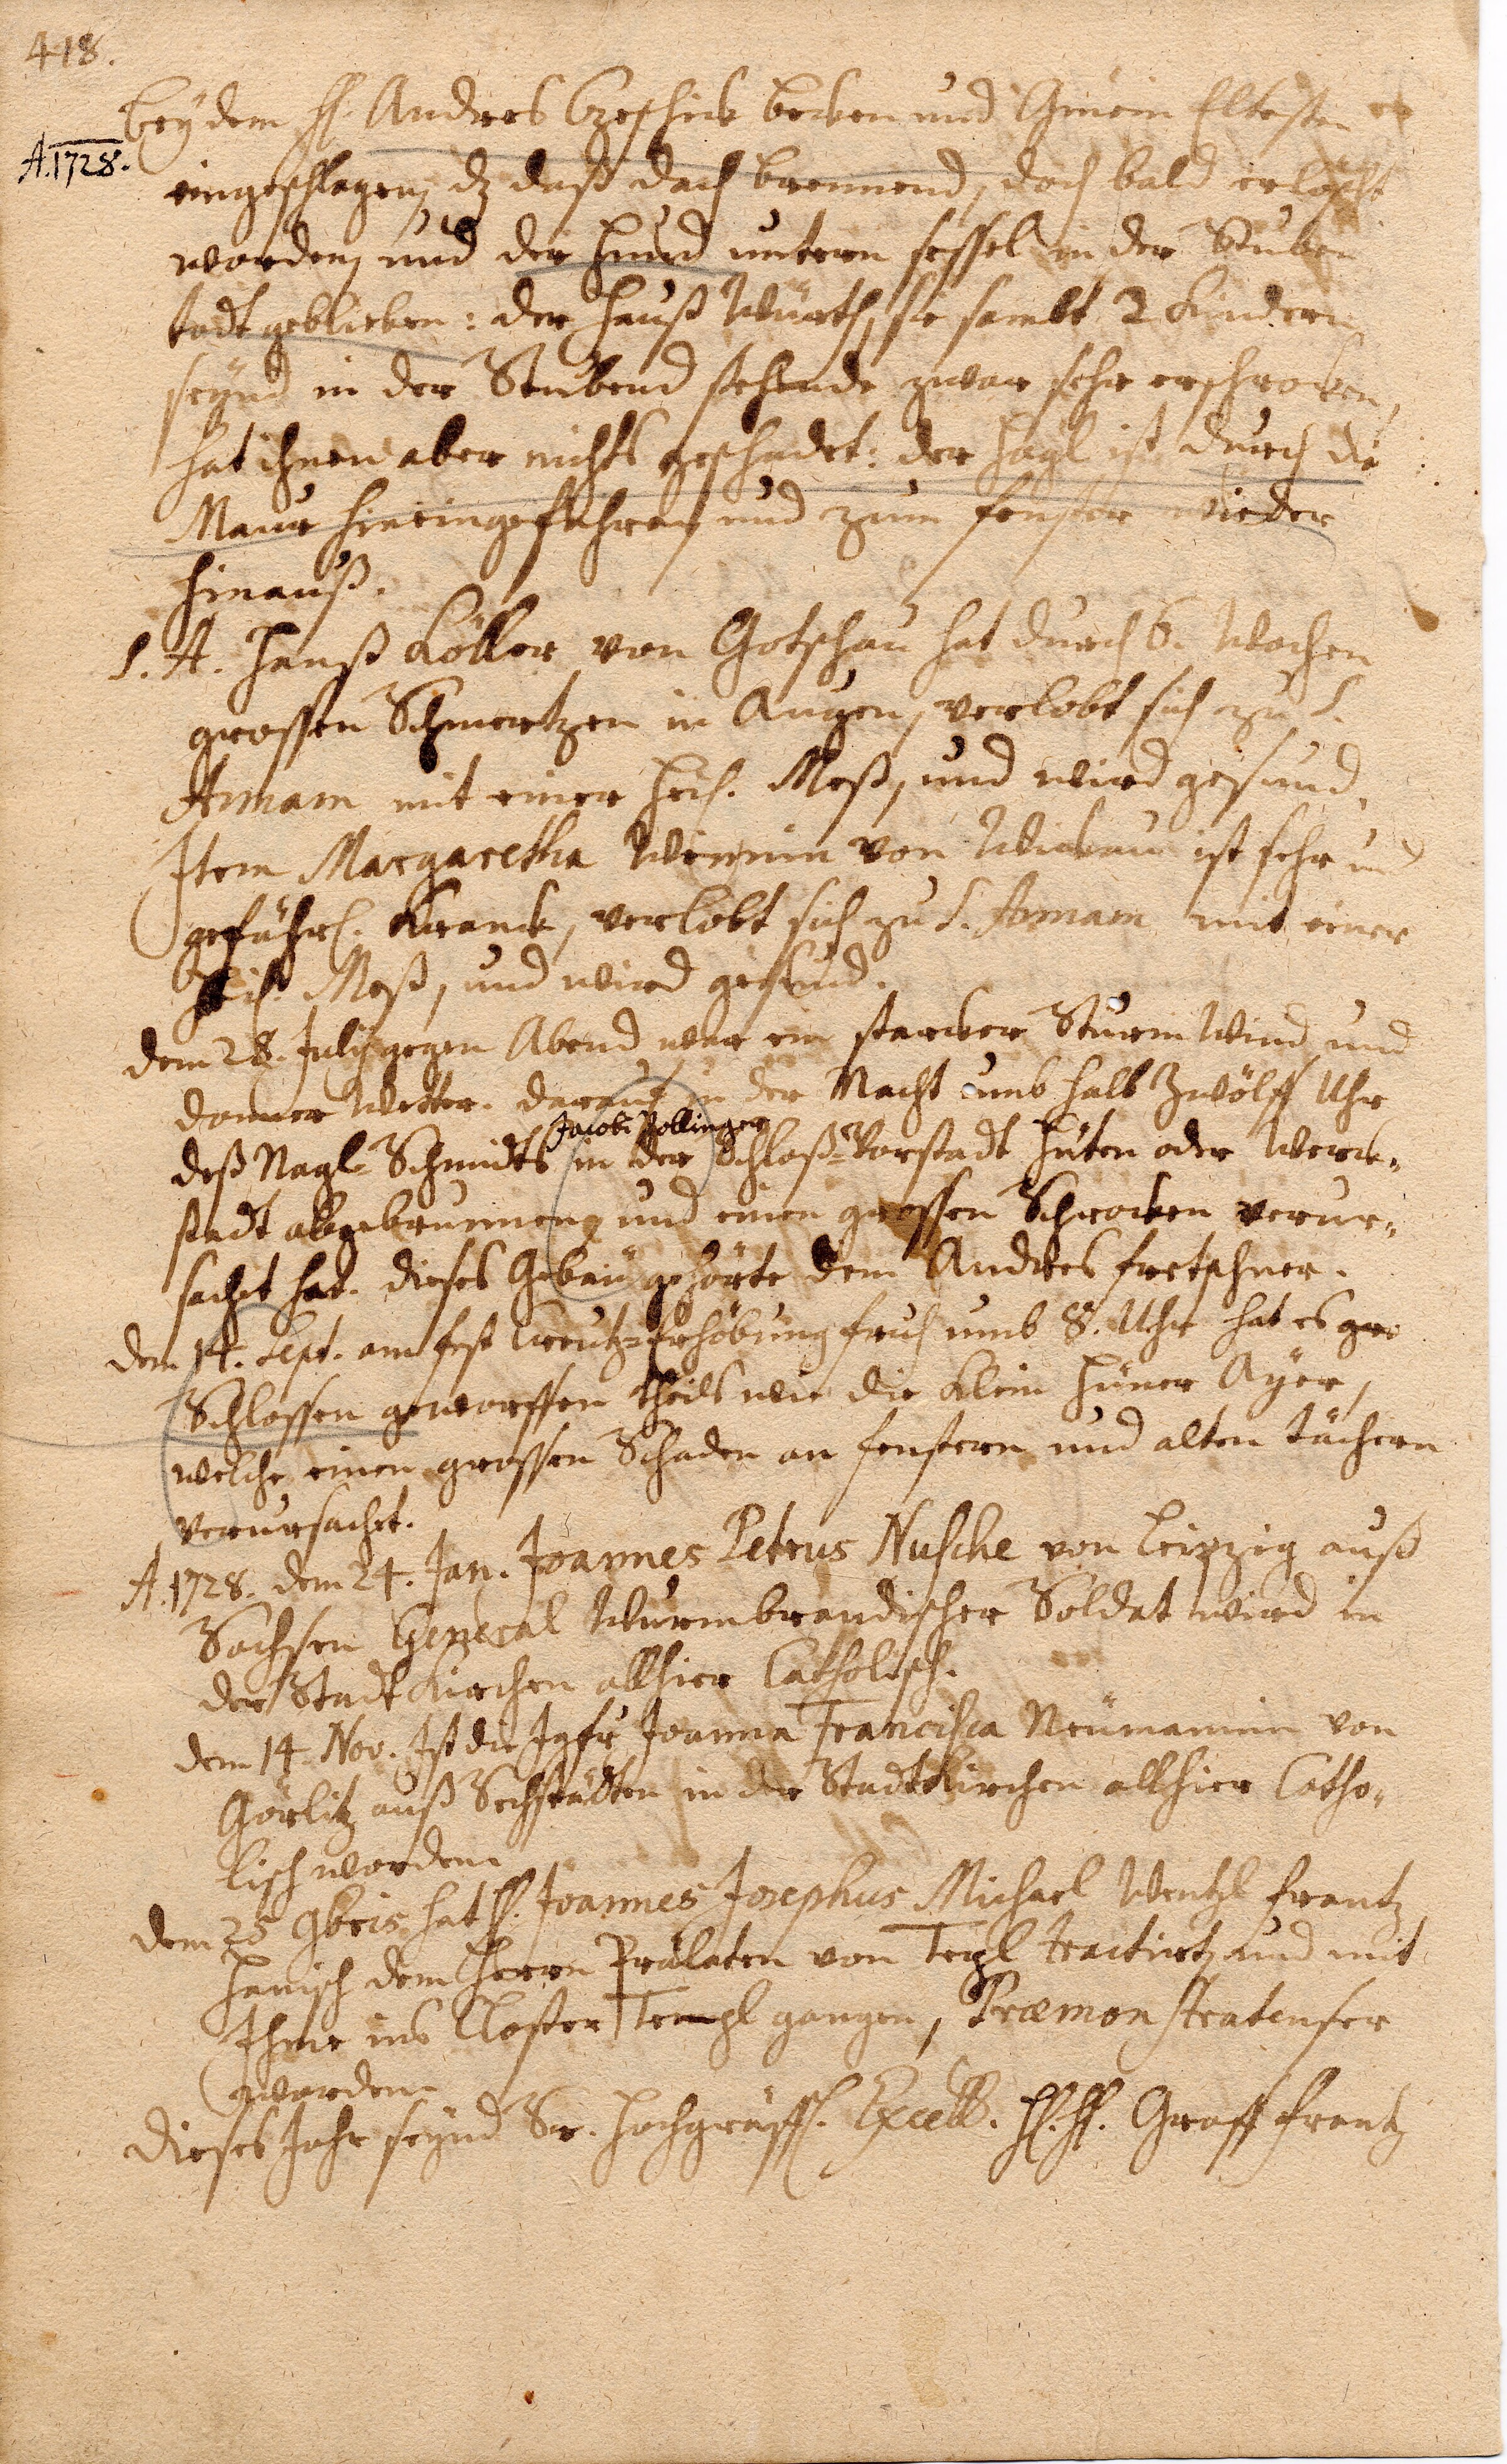 418.
bey dem H. Andres Czeschick becken und Gmein Eltesten
A. 1728.
eingeschlagen, dz daß dach brennend, doch bald erlöscht
worden, und der Hund unterm sessel in der Stuben
todt geblieben: der Hauß Würth, sie sambt 2 Kindern
seynd in der Stubend stehende zwar sehr erschrocken,
hat ihnen aber nichts geschadet: der Hagl ist durch die
Maur hineingefahren, und zum fenster wieder
hinauß.
S. A. Hanß Köller von Gotschau hat durch 6. Wochen
grossen Schmertzen in Augen, verlobt sich zu S.
Annam mit einer Heil. Meß, und wird gesund.
Item Margaretha von ist sehr und
gefährl. Kranck, verlobt sich zu S. Annam mit einer
Heil. Meß, und wird gesund.
dem 28. July gegen Abend war ein starcker Sturm Wind und
donner Wetter. darauf in der Nacht umb halb Zwölff Uhr
Jacobi Pollinger
deß Nagl-Schmidts in der Schloß-Vorstadt Hüten oder Werck-
stadt abgebrunnen, und einen grossen Schrocken verur-
sachet hat. dieses Gebäu gehörte dem Andres fretschner.
dem 14. Sept. am fest Creutz-Erhöbung fruh umb 8. Uhr hat es gro
Schlossen geworffen theils wie die klein Hüner Ayer,
welche einen grossen Schaden an fenstern und alten tächern
verursachet.
A. 1728. dem 24. Jan. Joannes Petrus Nusche von Leipzig auß
Sachsen General Wurmbrandischer Soldat wird in
der Stadt Kirchen allhier Catholisch.
dem 14 Nov. Ist die Jgfr Joanna Francisca Neümannin von
Görlitz auß Sechstädten in der Stadt Kirchen allhier Catho-
lisch worden
dem 25 9bris hat H. Joannes Josephus Michael Wentzl Frantz
Hanisch dem Herrn Prälaten von Tepl tractirt, und mit
Ihme ins Closter Templ gangen, Præmonstratenser
worden
dieses Jahr seynd Sr. Hochgräffl. Excell. H. H. Graff Frantz